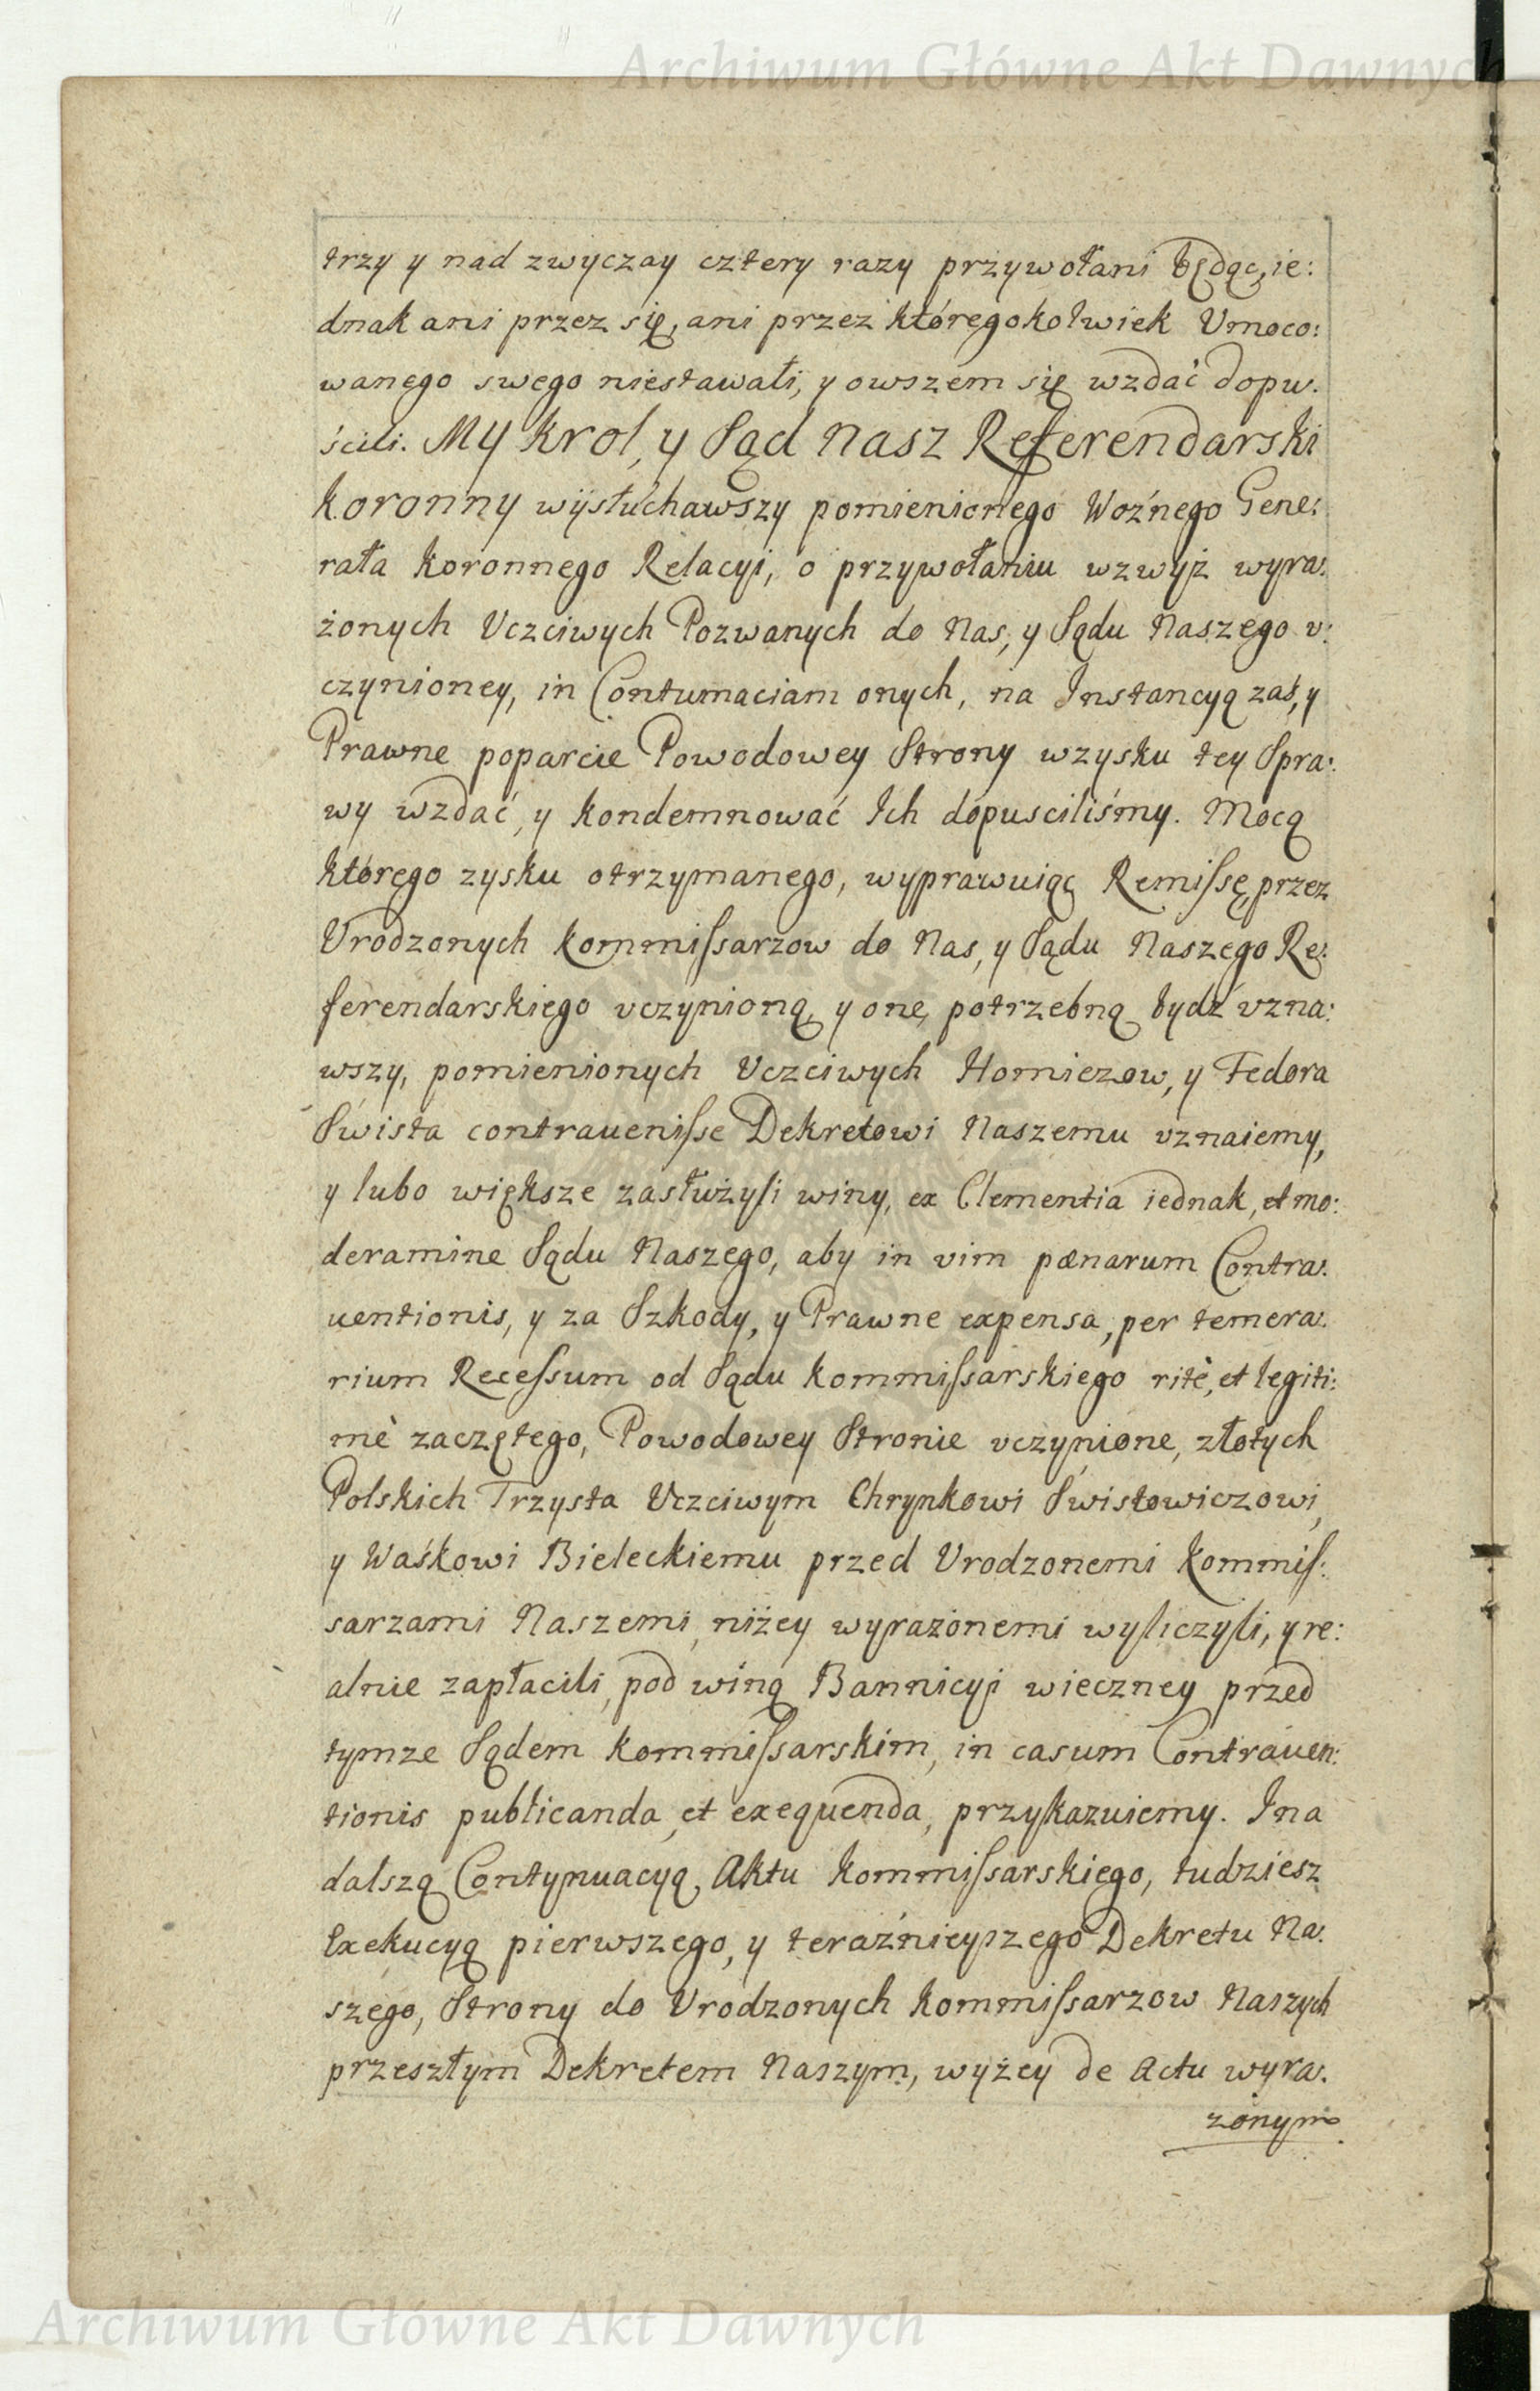 Archiwum Główne Akt Dawnych
trzy y nad zwyczay cztery razy przywołani będąc, ie:
dnak ani przez się, ani przez któregokolwiek Vmoco:
wanego swego niestawali, y owszem się wzdać dopu:
ścili. My Krol, y Sąd Nasz Referendarski
Koronny wysłuchawszy pomienionego Woźnego Gene:
rała Koronnego Relacyi, o przywołaniu wzwyż wyra:
żonych Vczciwych Pozwanych do Nas, y Sądu Naszego v:
czynioney, in Contumaciam onych, na Instancyą zaś, y
Prawne poparcie Powodowey Strony wzysku tey Spra:
wy wzdać, y kondemnować Ich dopusciliśmy. Mocą
którego zysku otrzymanego, wyprawuiąc Remissę, przez
Vrodzonych Kommissarzow do Nas, y Sądu Naszego Re:
ferendarskiego vczynioną, y onę potrzebną bydź vzna:
wszy, pomienionych Vczciwych Horniczow, y Fedora
Swista contrauenisse Dekretowi Naszemu vznaiemy,
y lubo większe zasłużyli winy, ex Clementia iednak, et mo:
deramine Sądu Naszego, aby in vim pœnarum Contra:
uentionis, y za Szkody, y Prawne expensa, per temera:
rium Recessum od Sądu Kommissarskiego ritè, et legiti:
mè zaczętego, Powodowey Stronie vczynione, złotych
Polskich Trzysta Vczciwym Chrynkowi Swistowiczowi,
y Waśkowi Bieleckiemu przed Vrodzonemi Kommis:
sarzami Naszemi, niżey wyrażonemi wyliczyli, y re:
alnie zapłacili, pod winą Bannicyi wieczney przed
tymze Sądem Kommissarskim, in casum Contrauen:
tionis publicanda, et exequenda, przykazuiemy. I na
dalszą Contynuacyą Aktu Kommissarskiego, tudziesz
Exekucyą pierwszego, y teraźnieyszego Dekretu Na:
szego, Strony do Vrodzonych Kommissarzow Naszych
przeszłym Dekretem Naszym, wyżey de Actu wyra:
żonym
Archiwum Główne Akt Dawnych